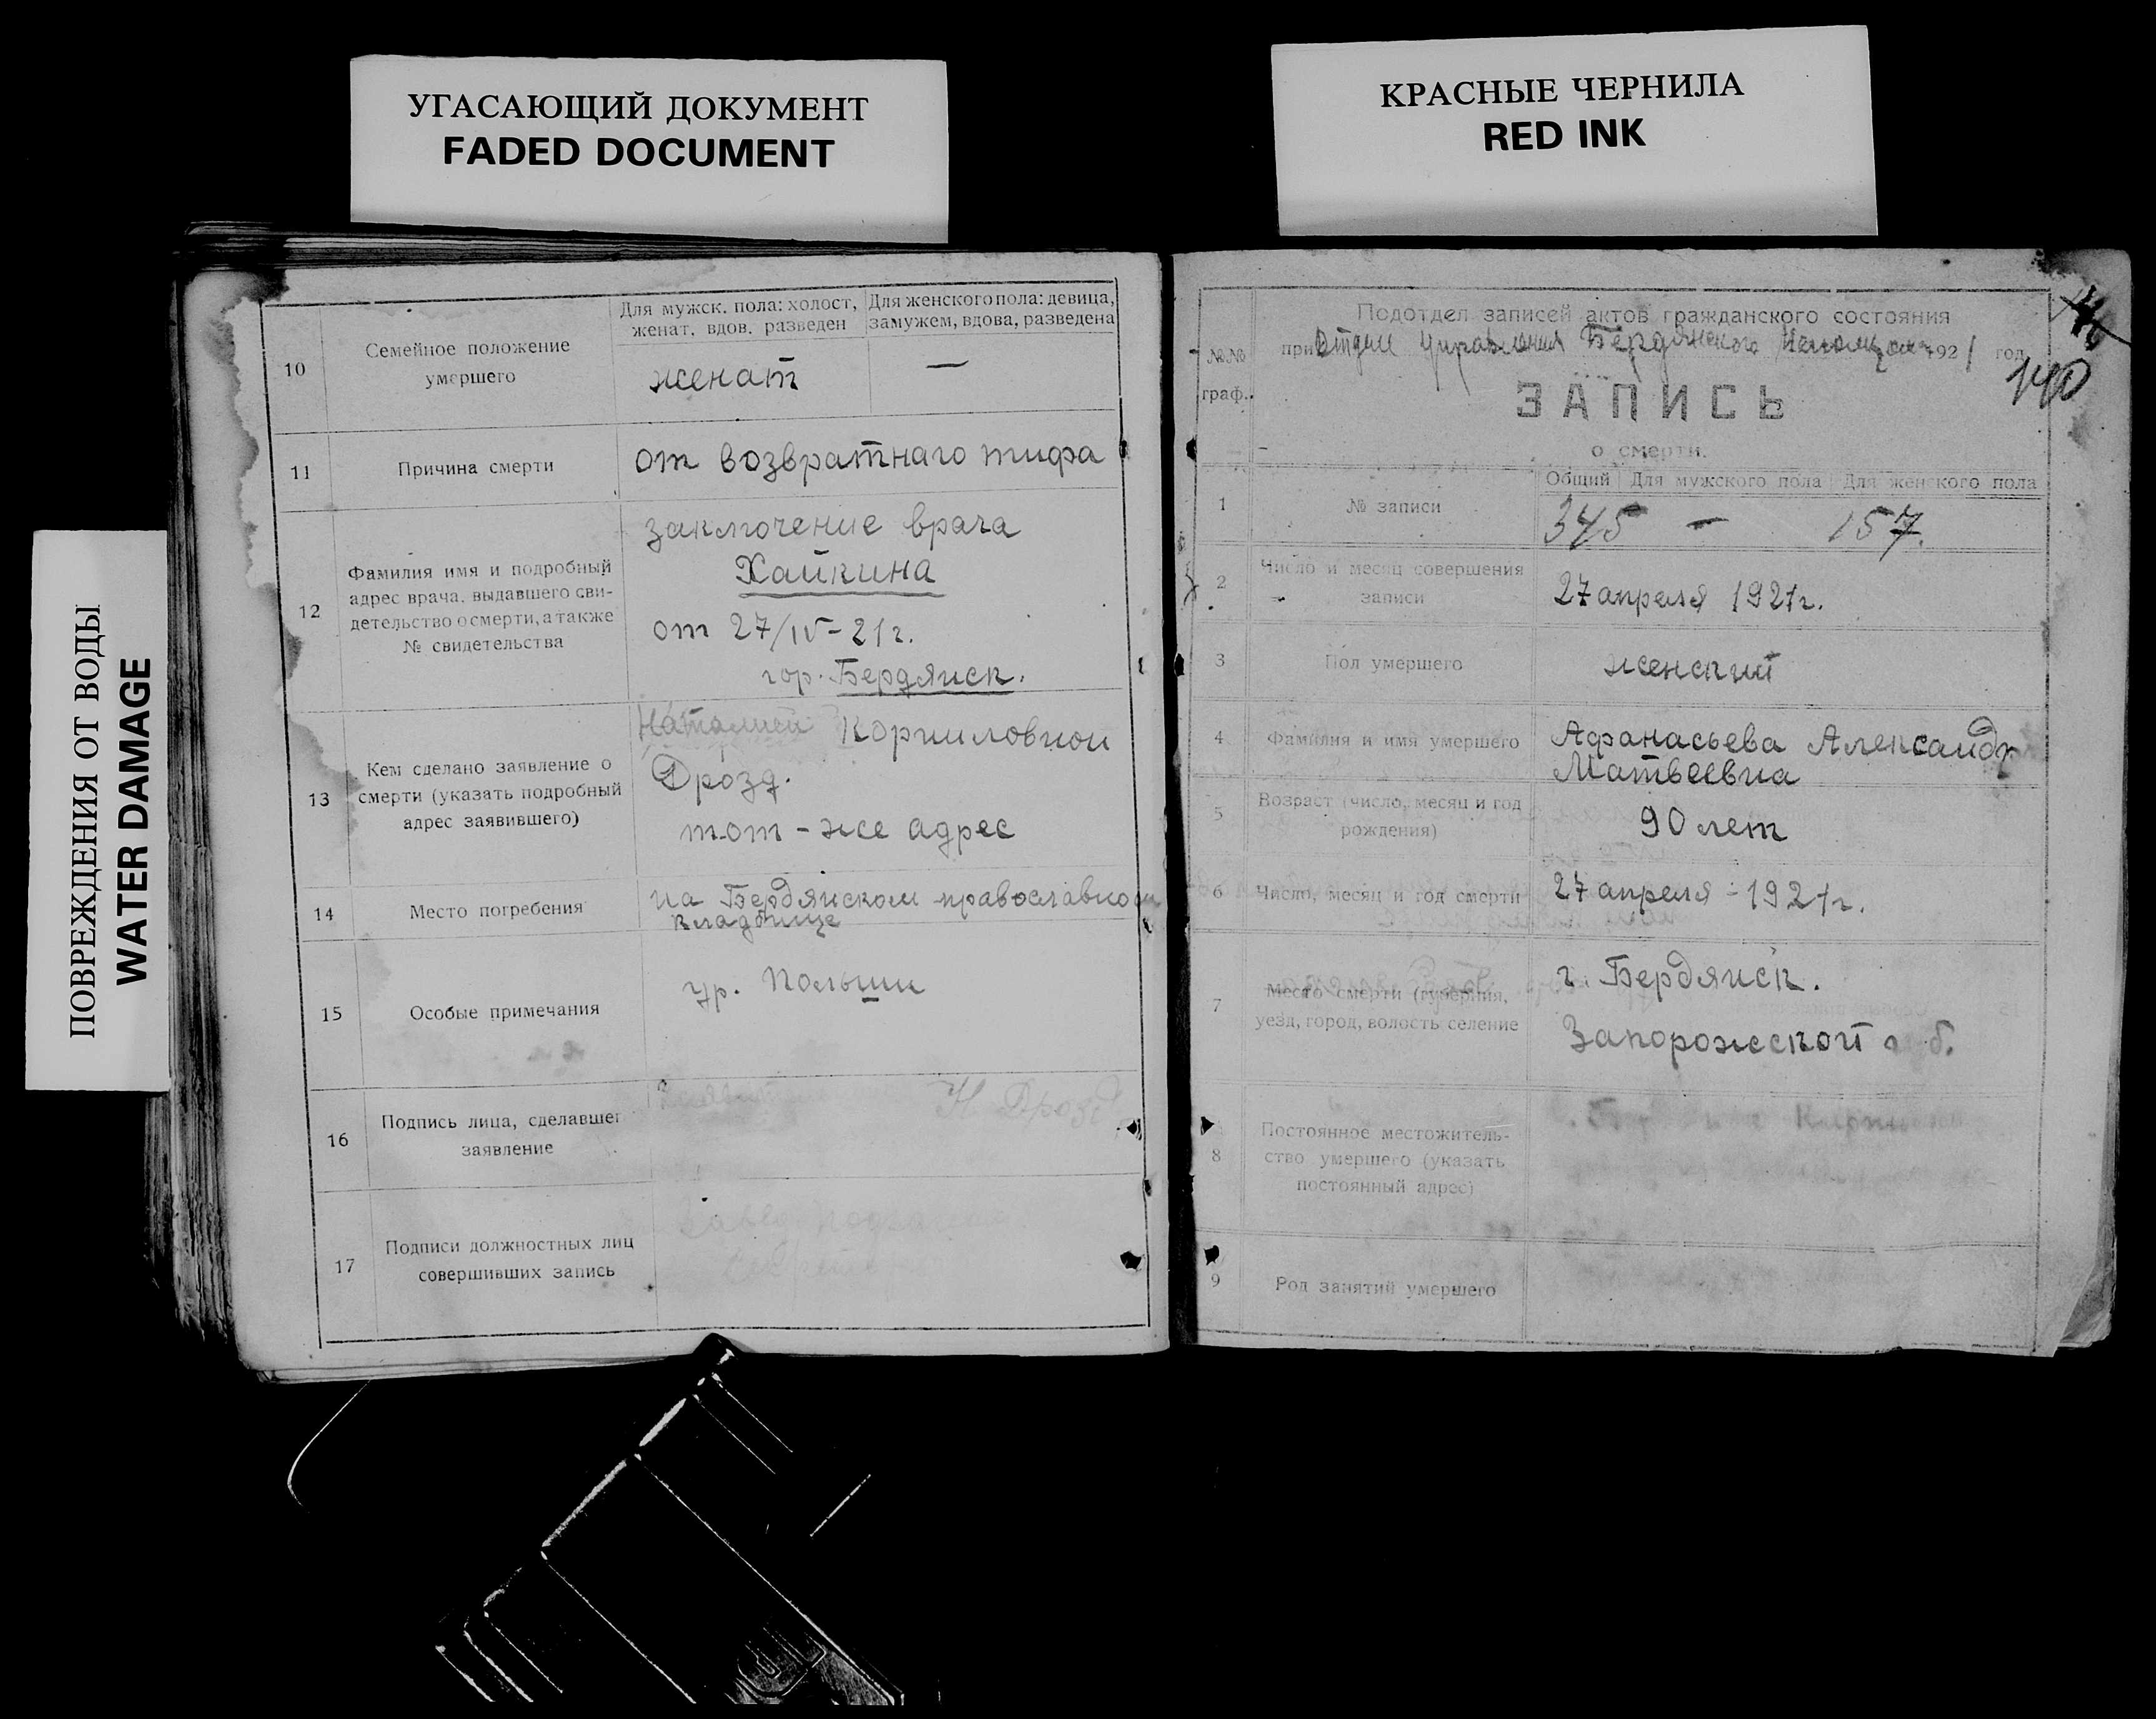 УГАСАЮЩИЙ ДОКУМЕНТ
FADED DOCUMENT
КРАСНЫЕ ЧЕРНИЛА
RED INK
ПОВРЕЖДЕНИЯ ОТ ВОДЫ
WATER DAMAGE
10
Семейное положение
умершего
Для мужск. пола: холост,
женат. вдов. разведен
Для женского пола: девица,
замужем, вдова, разведена
женат
—
11
Причина смерти
от возвратнаго тифа
12
Фамилия имя и подробный
адрес врача. выдавшего сви-
детельство о смерти, а также
№ свидетельства
заключение врача
Хайкина
от 27/IV-21г.
гор. Бердянск.
13
Кем сделано заявление о
смерти (указать подробный
адрес заявившего)
Наталией Корниловной
Дрозд.
тот-же адрес
14
Место погребения
на Бердянском православном
кладбище
15
Особые примечания
ур. Польши
16
Подпись лица, сделавшег
заявление
Н Дрозд
17
Подписи должностных лиц
совершивших запись
140
№№
граф.
Подотдел записей актов гражданского состояния
при Отделе Управления Бердянского Исполкома 1921 год
ЗАПИСЬ
о смерти.
1
№ записи
Общий
Для мужского пола
Для женского пола
345
—
157.
2
Число и месяц совершения
записи
27 апреля 1921г.
3
Пол умершего
женский
4
Фамилия и имя умершего
Афанасьева Александра
Матвеевна
5
Возраст (число, месяц и год
рождения)
90 лет
6
Число, месяц и год смерти
27 апреля - 1921г.
7
Место смерти (губерния,
уезд, город, волость селение
г. Бердянск.
Запорожской губ.
8
Постоянное местожитель-
ство умершего (указать
постоянный адрес)
9
Род занятий умершего